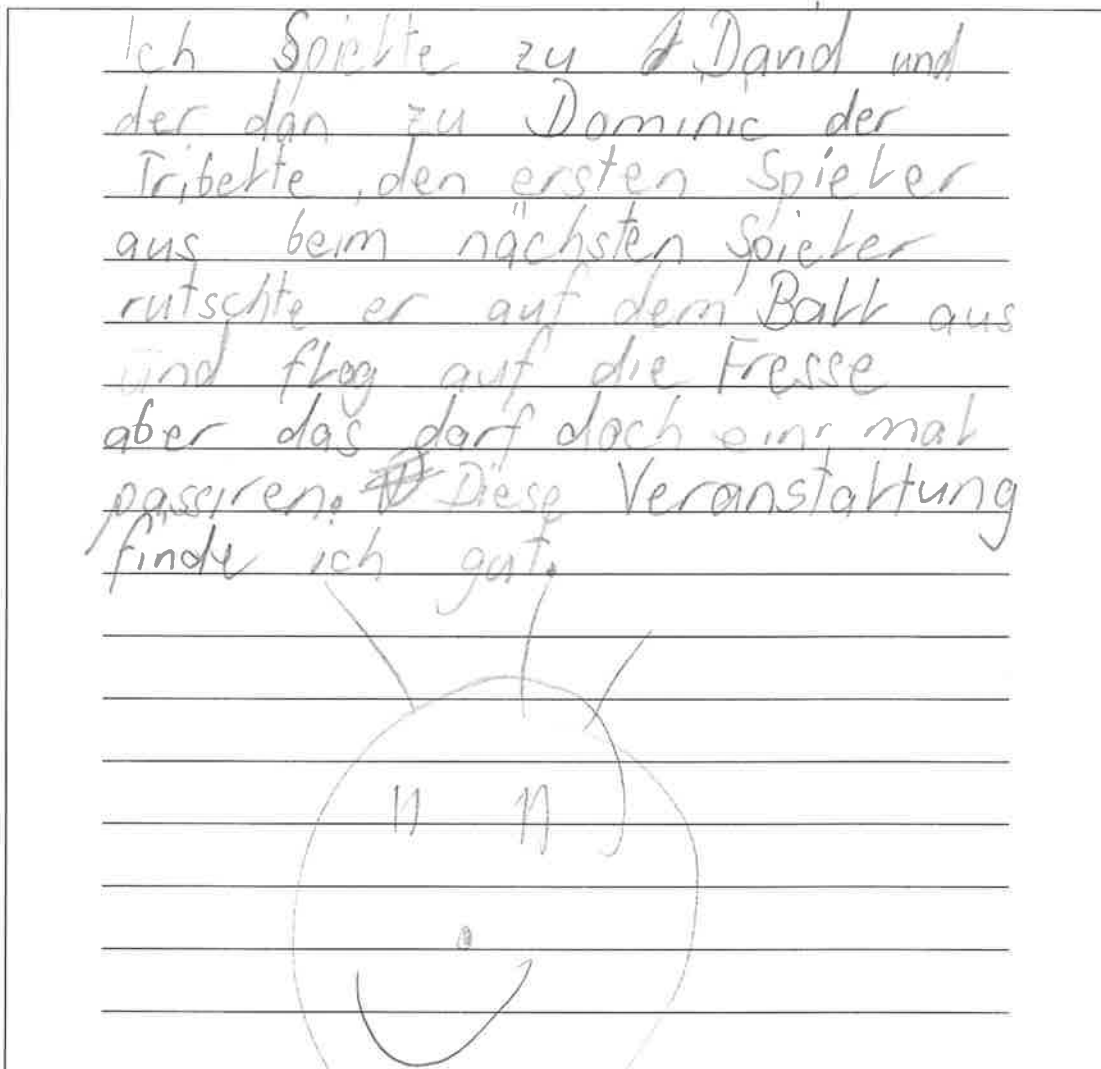 Ich Spielte zu David und
der dan zu Dominic der
Tribelte den ersten Spieler
aus beim nächsten Spieler
rutschte er auf dem Ball aus
und flog auf die Fresse
aber das darf doch mal
passiren. Diese Veranstaltung
finde ich gut.